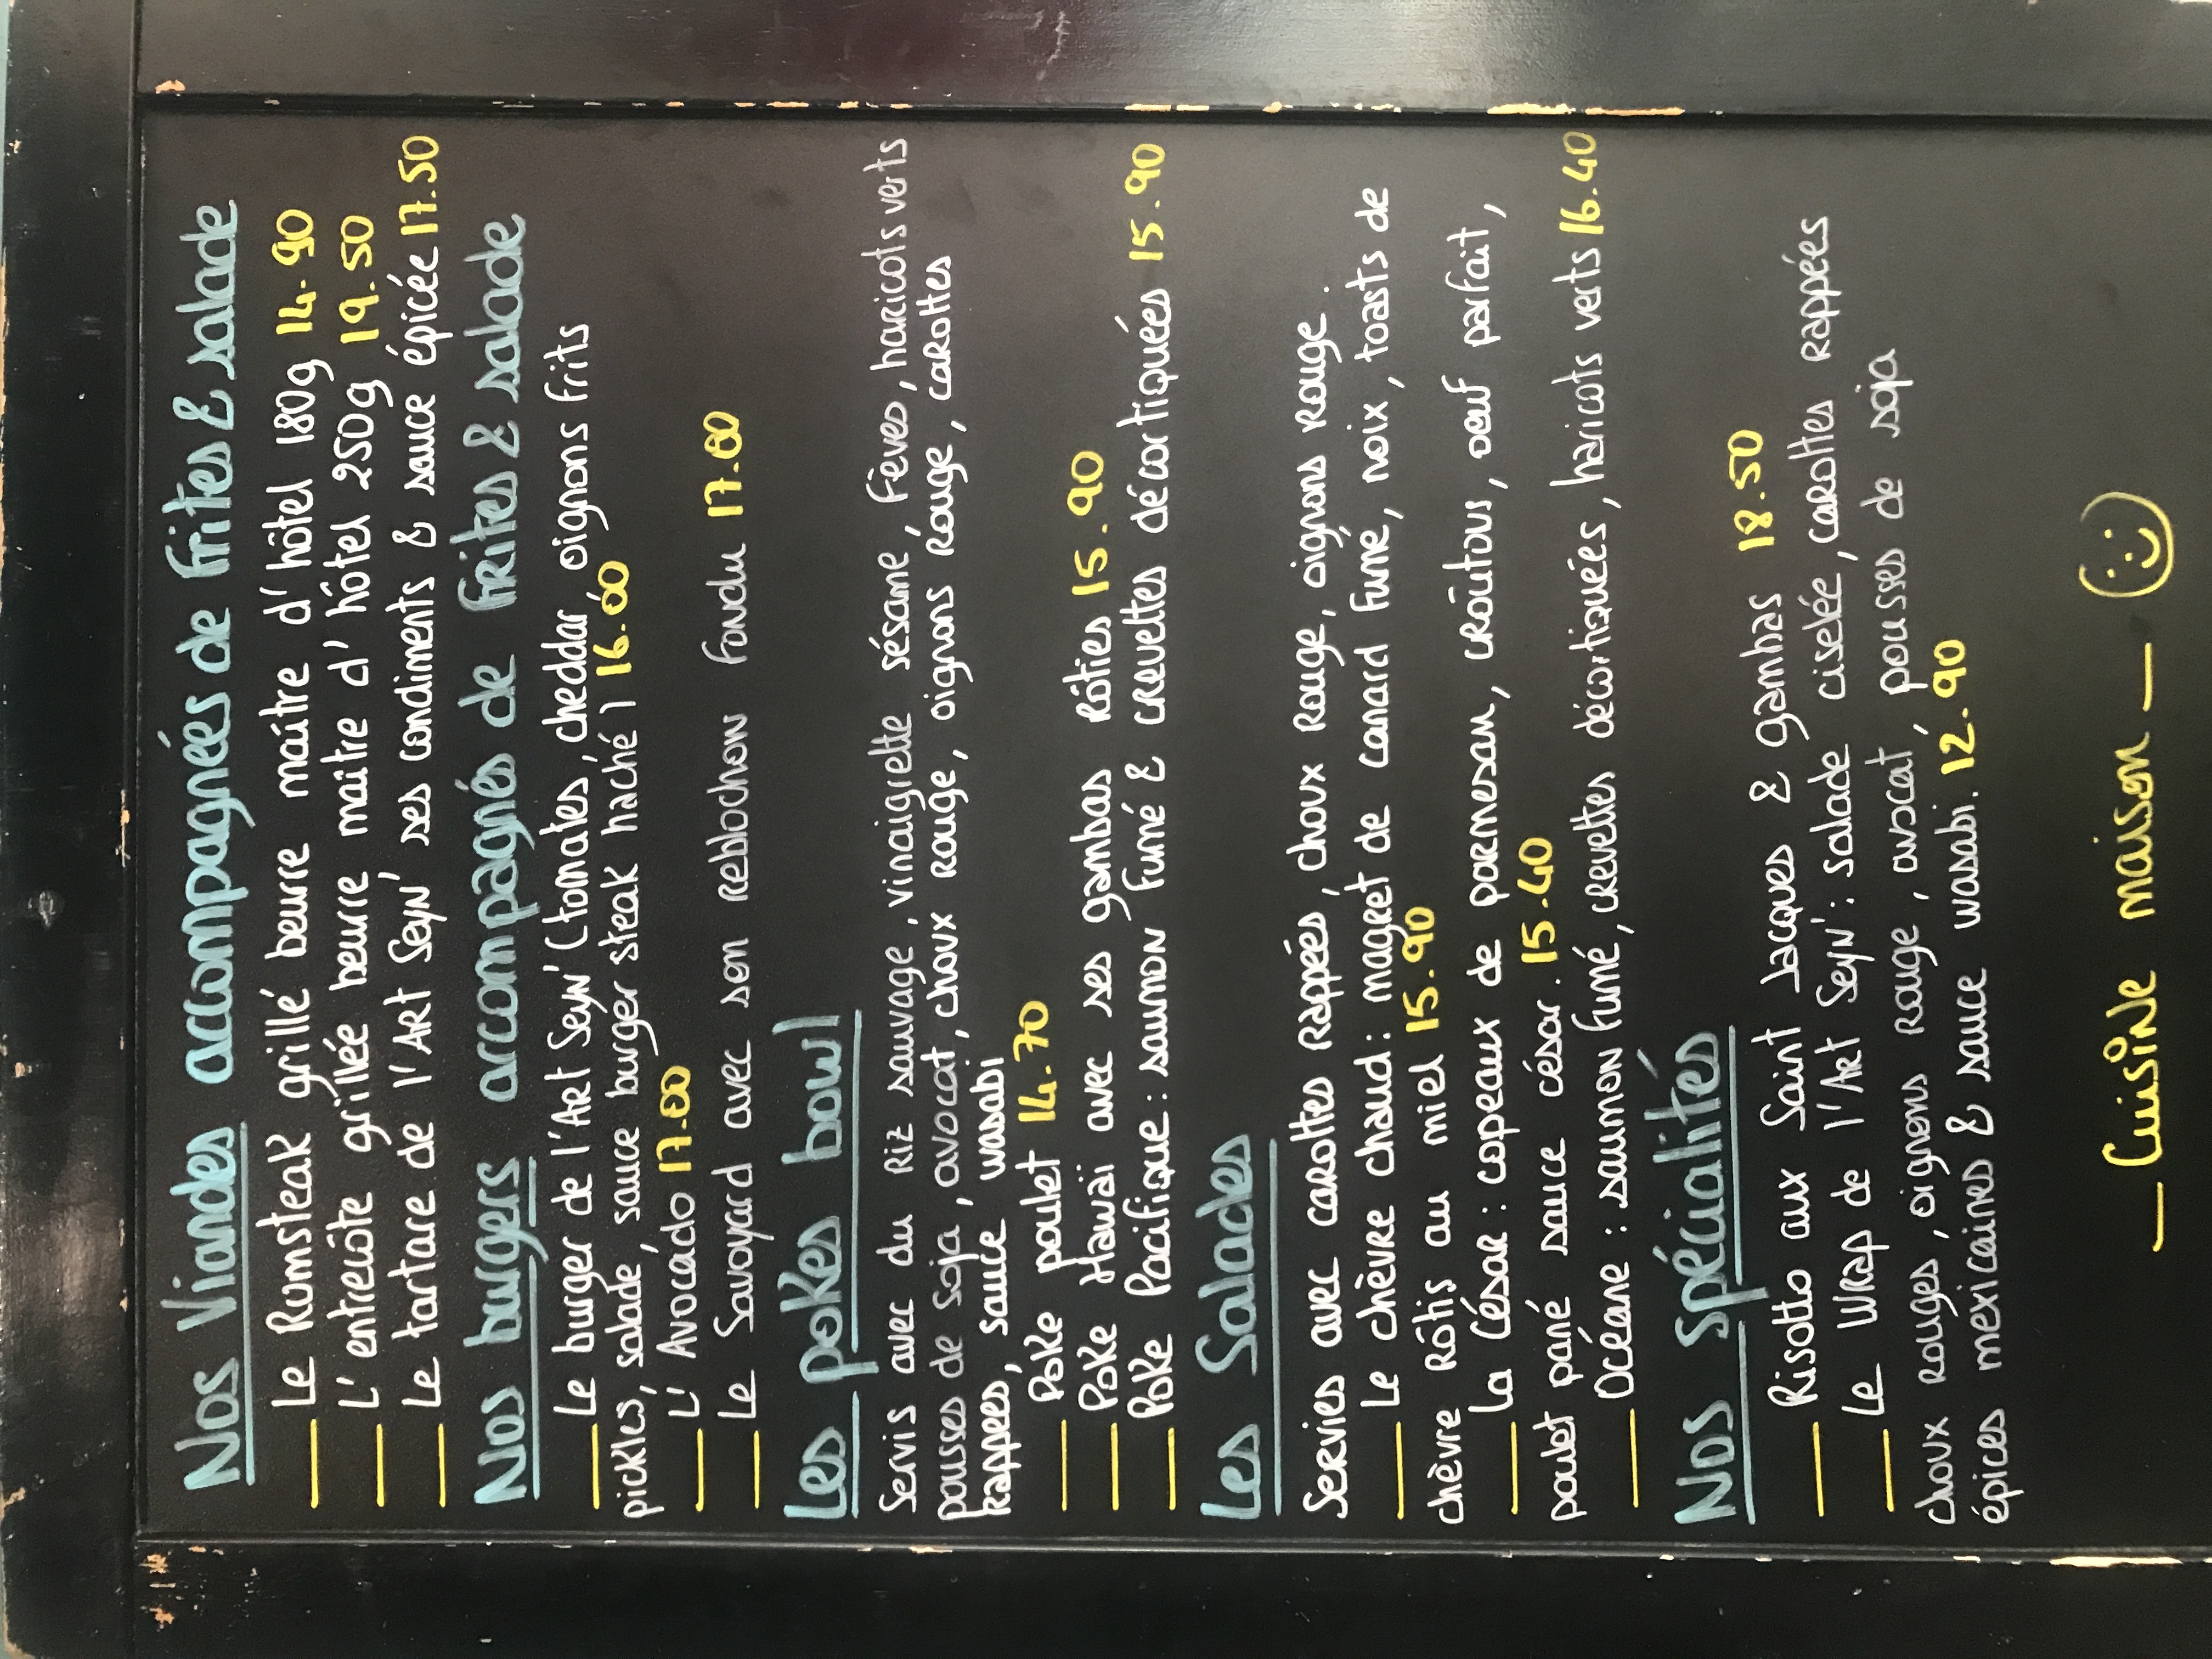 Nos Viandes accompagnées de frites & salade
— Le Rumsteak grillé beurre maître d'hôtel 180g 14.90
— L'entrecôte grillée beurre maître d'hôtel 250g 19.50
— Le tartare de l'Art Seyn' ses condiments & sauce épicée 17.50
Nos burgers accompagnés de frites & salade
— Le burger de l'Art Seyn' (tomates, cheddar, oignons frits
pickles, salade, sauce burger steak haché) 16.00
— L'Avocado 17.00
— Le Savoyard avec son reblochon fondu 17.00
Les pokes bowl
Servis avec du Riz sauvage, vinaigrette sésame, fèves, haricots verts
pousses de Soja, avocat, choux rouge, oignons Rouge, carottes
Rappees, sauce wasabi
— Poke poulet 14.70
— Poke Hawaï avec ses gambas rôties 15.90
— Poke Pacifique : saumon fumé & crevettes décortiquées 15.90
Les Salades
Servies avec carottes Rappées, choux Rouge, oignons Rouge.
— Le chèvre chaud : magret de canard fumé, noix, toasts de
chèvre Rôtis au miel 15.90
— La César : copeaux de parmesan, croûtons, oeuf parfait,
poulet pané sauce césar. 15.40
— Océane : saumon fumé, crevettes décortiquées, haricots verts 16.40
Nos Spécialités
— Risotto aux Saint Jacques & gambas 18.50
— Le Wrap de l'Art Seyn' : salade ciselée, carottes rappées
choux rouges, oignons rouge, avocat, pousses de soja
épices mexicaines & sauce wasabi. 12.90
— Cuisine maison —